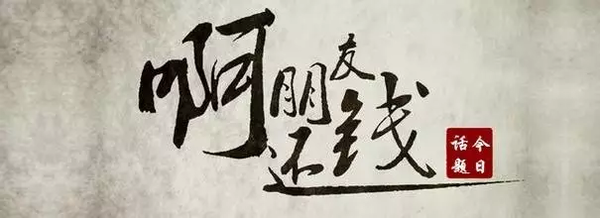 啊朋友还钱
今日话题